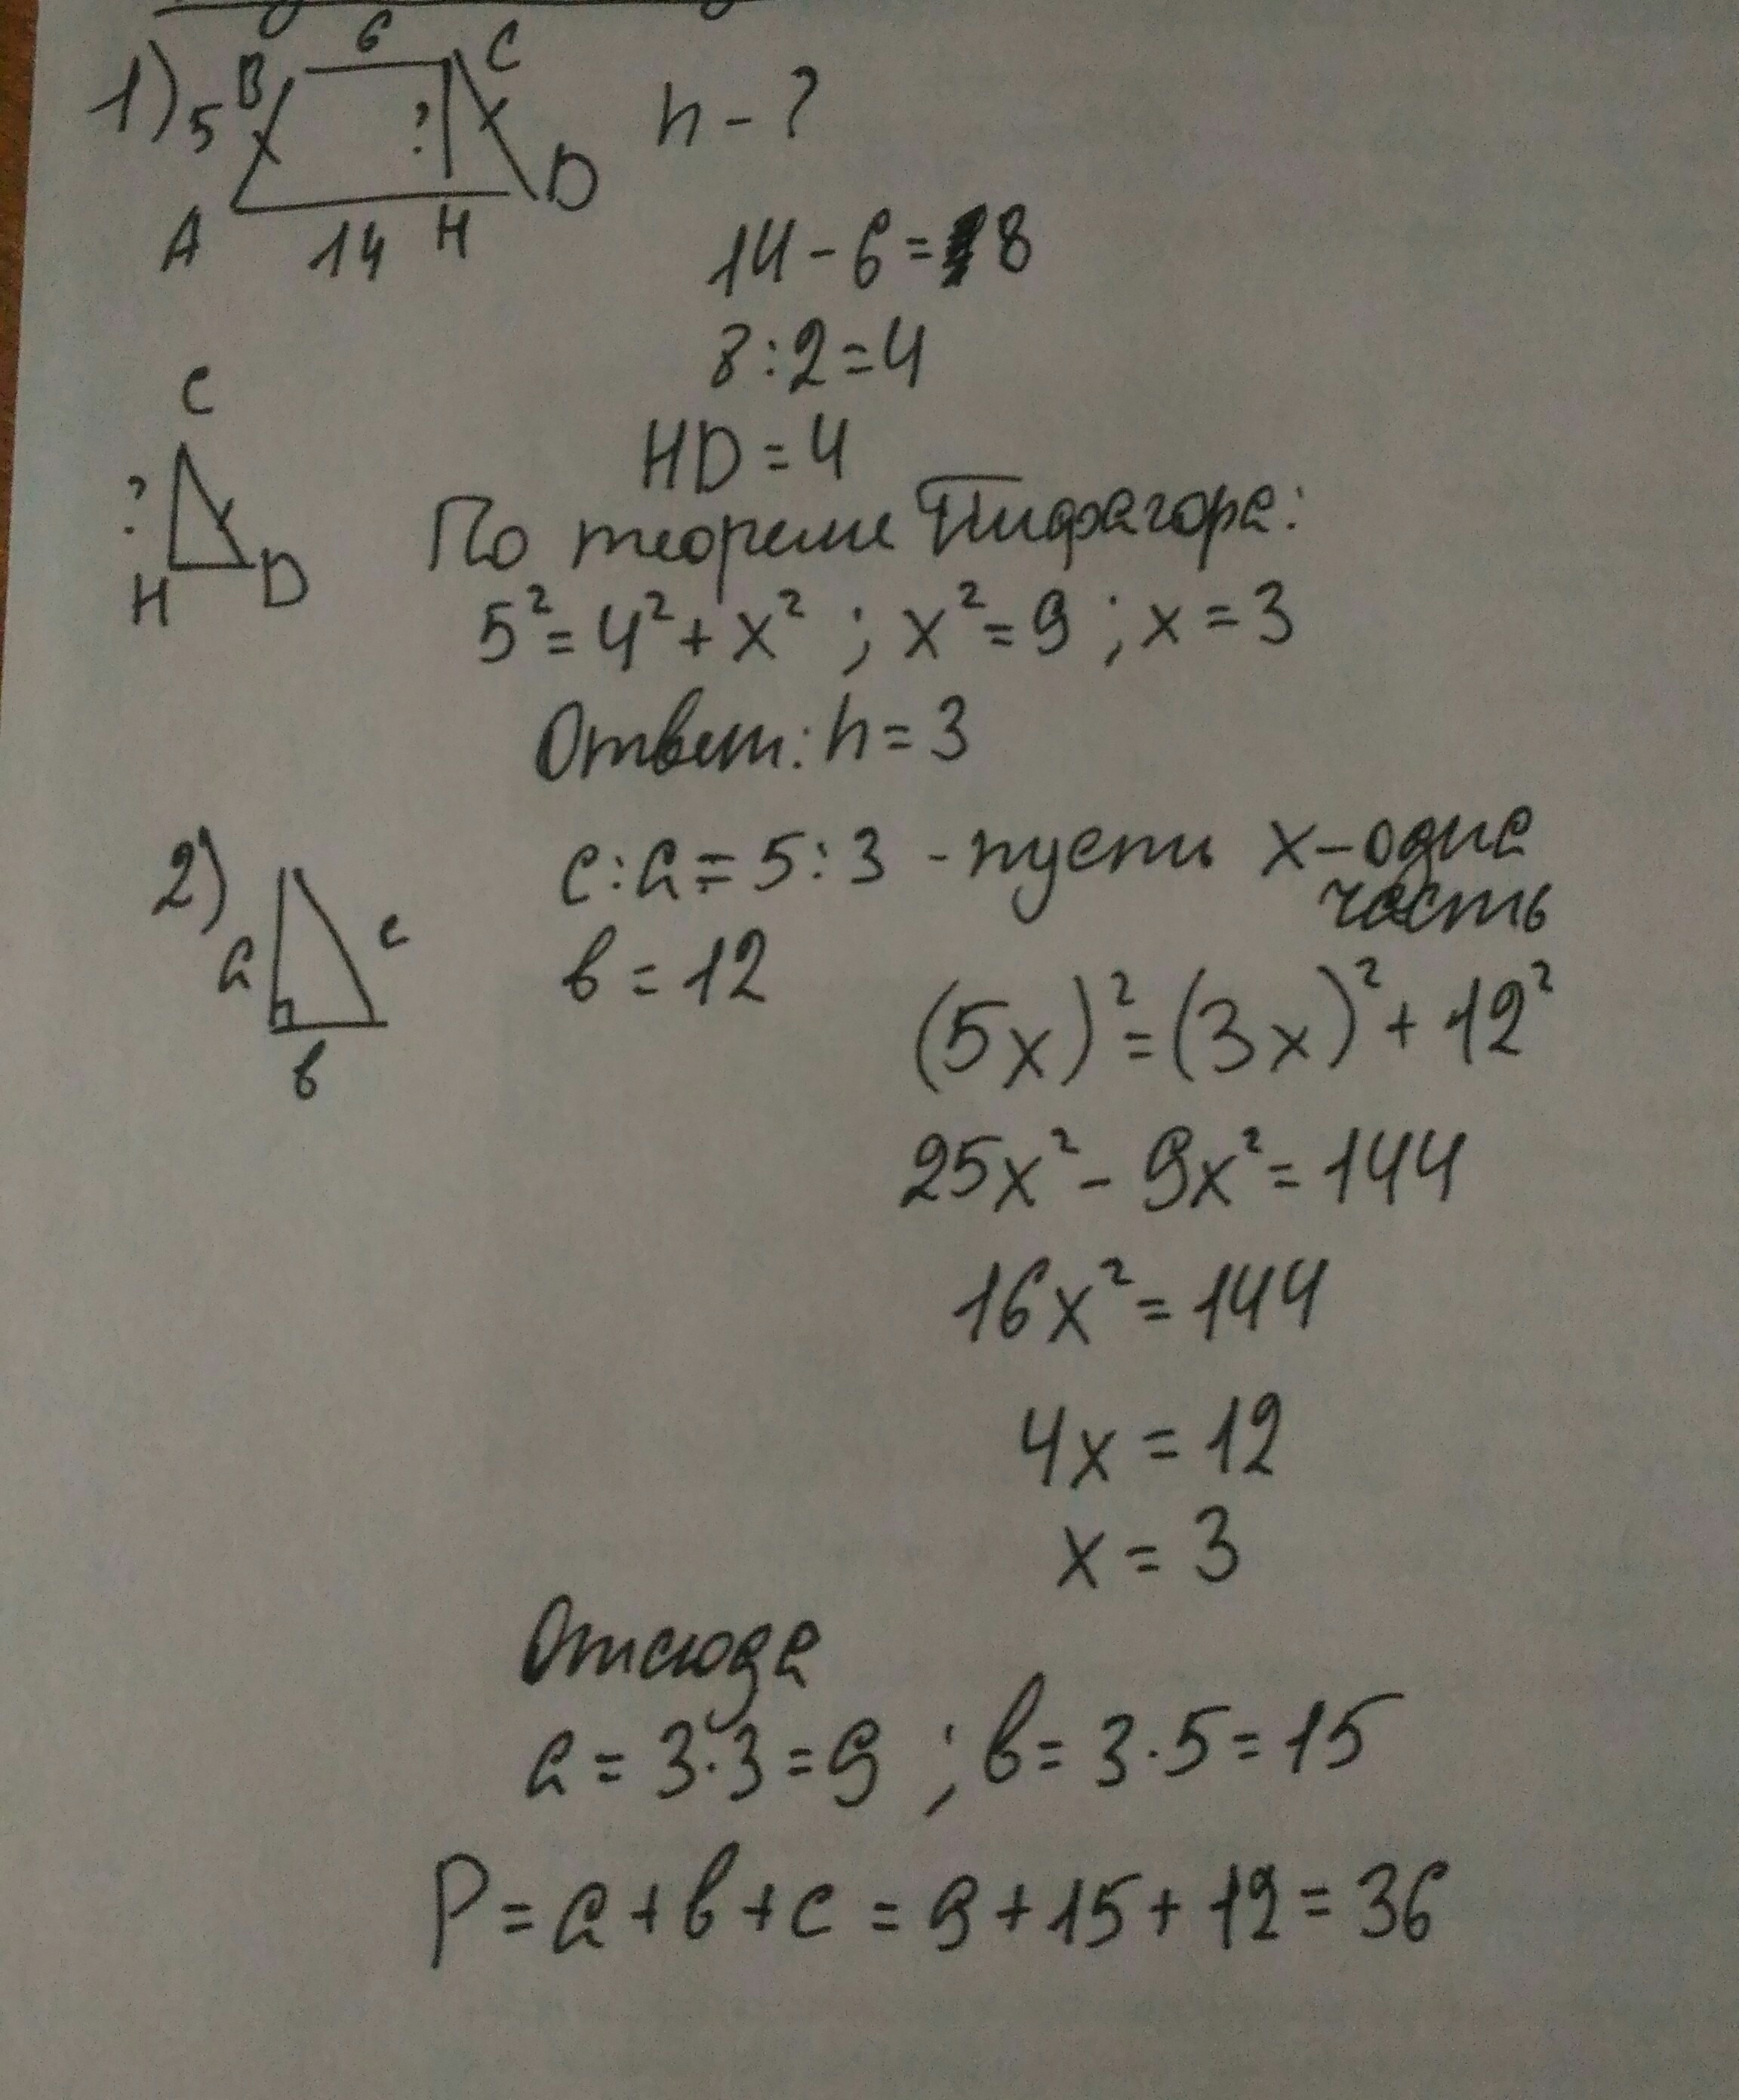 1) 5 B 6 C h - ?
?
A 14 H D
14 - 6 = 8
8 : 2 = 4
HD = 4
C
?
H D
По теореме Пифагора:
5² = 4² + x² ; x² = 9 ; x = 3
Ответ: h = 3
2) a c в
c : a = 5 : 3 - пусть x - одна
часть
в = 12
(5x)² = (3x)² + 12²
25x² - 9x² = 144
16x² = 144
4x = 12
x = 3
Отсюда
a = 3·3 = 9 ; в = 3·5 = 15
P = a + в + c = 9 + 15 + 12 = 36